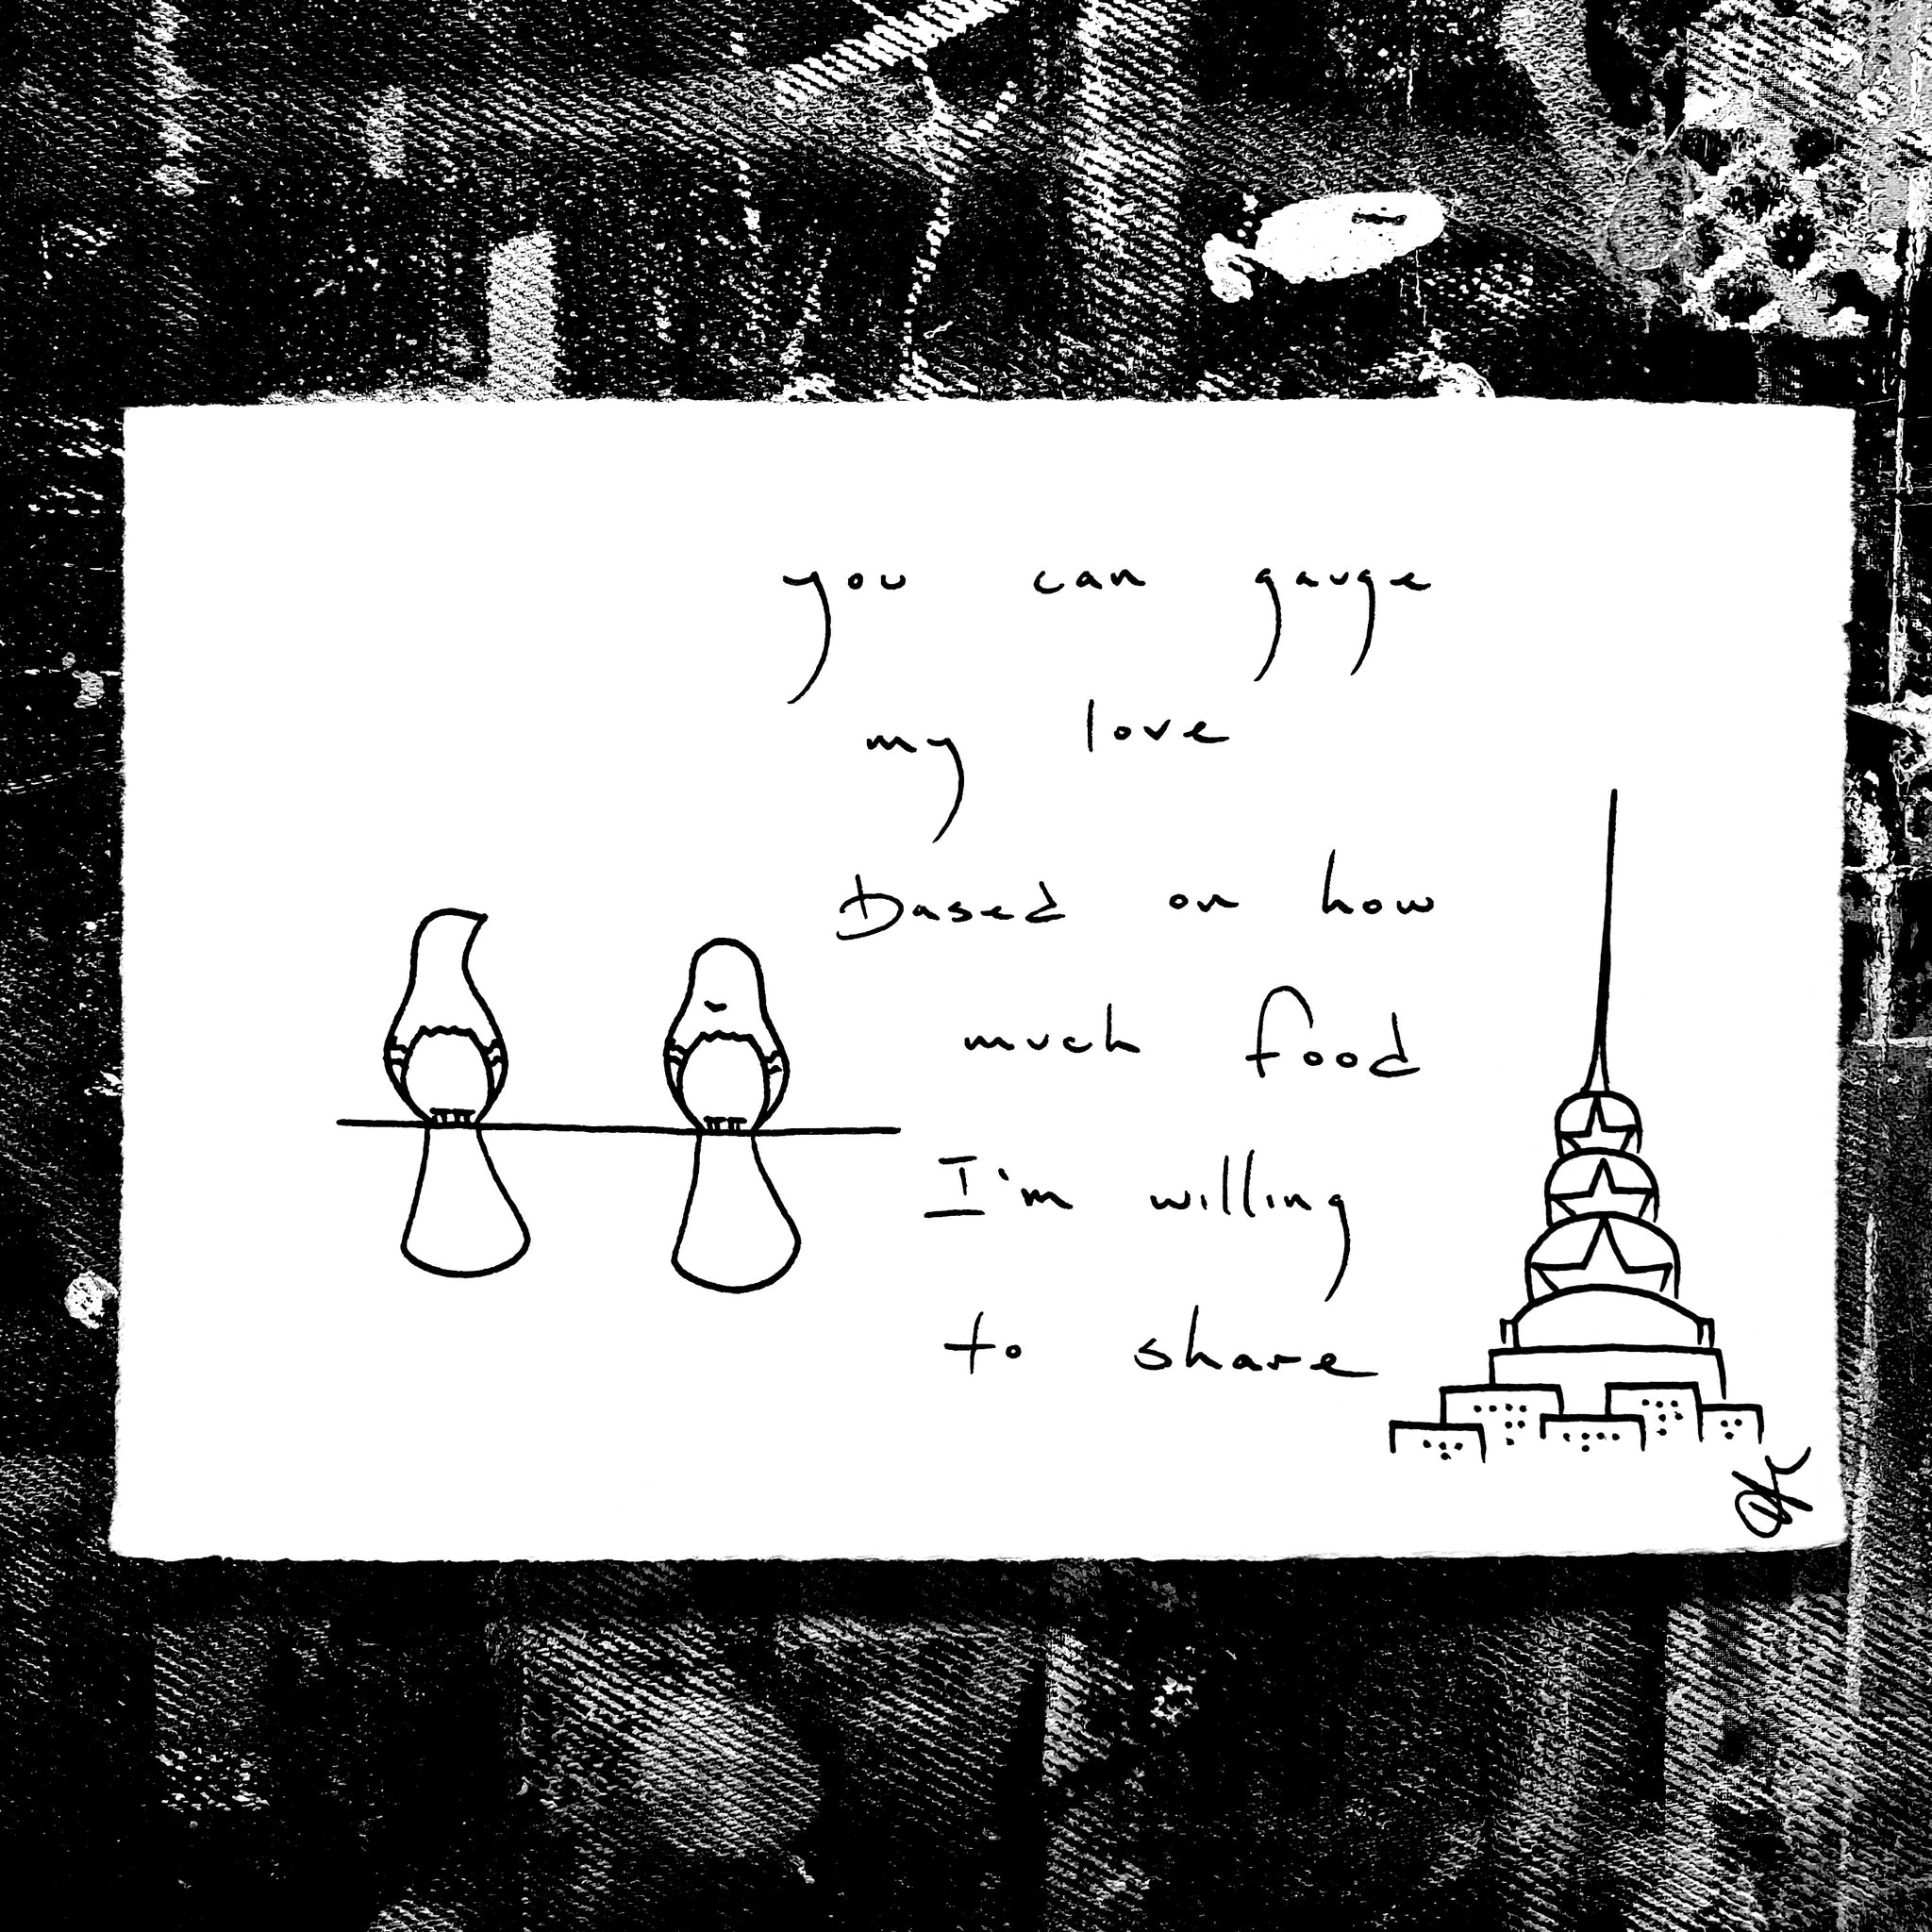 you can gauge
my love
based on how
much food
I'm willing
to share